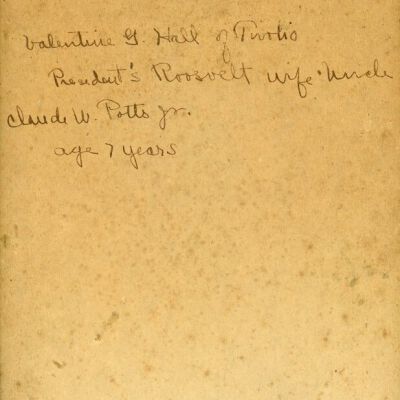 Valentine G. Hall of Tivolio
President's Roosvelt wife Uncle
Claude W. Potts Jr.
age 7 years